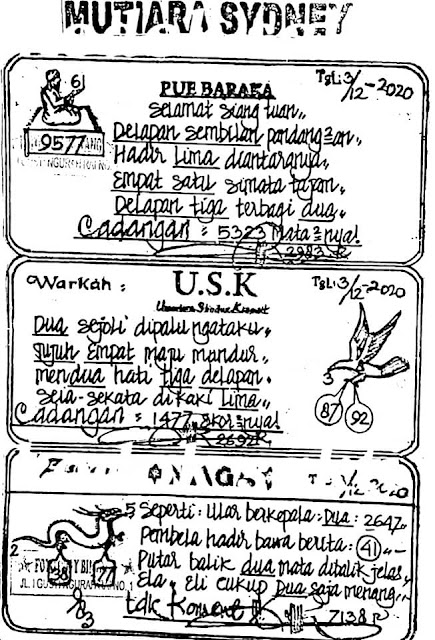 MUTIARA SYDNEY
6
9577
PUE BARAKA
Tgl: 3/12-2020
Selamat siang tuan,,
Delapan sembilan pandang²an,,
Hadir lima diantaranya,,
Empat satu simata tajan,,
Delapan tiga terbagi dua,,
Cadangan = 5323 Mata²nya!
2983 R
Warkah :
U.S.K
Tgl: 3/12-2020
Dua sejoli dipalu ngataku,,
Tujuh Empat maju mundur,,
mendua hati tiga delapan.
Sela-sekata dikaki lima,,
Cadangan = 1477 Ekor²nya!
2692 R
3
87
92
NAGA
/12-2020
5 Seperti: Ular berkepala: Dua : 2647,,
Pembela hadir bawa berita: 41,,-
Putar balik dua mata dibalik jelas,,
Ela, Eli cukup Dua saja menang,,
2
38
77
JL. I GUSTI NGURAH RAI NO. 1
83
7138 R